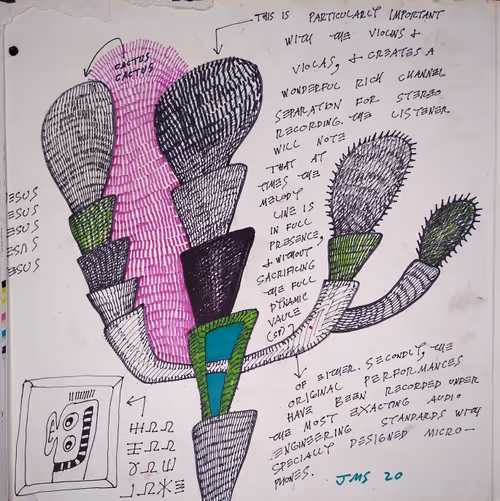 THIS IS PARTICULARLY IMPORTANT
WITH THE VIOLINS &
VIOLAS, & CREATES A
WONDERFUL RICH CHANNEL
SEPARATION FOR STEREO
RECORDING. THE LISTENER
WILL NOTE
THAT AT
TIMES THE
MELODY
LINE IS
IN FULL
PRESENCE,
& WITHOUT
SACRIFICING
THE FULL
DYNAMIC
VAULE
(SP)
OF EITHER. SECONDLY, THE
ORIGINAL PERFORMANCES
HAVE BEEN RECORDED UNDER
THE MOST EXACTING AUDIO
ENGINEERING STANDARDS WITH
SPECIALLY DESIGNED MICRO-
PHONES.
JMS 20
CACTUS
CACTUS
ESUS
ESUS
ESUS
ESUS
ESUS